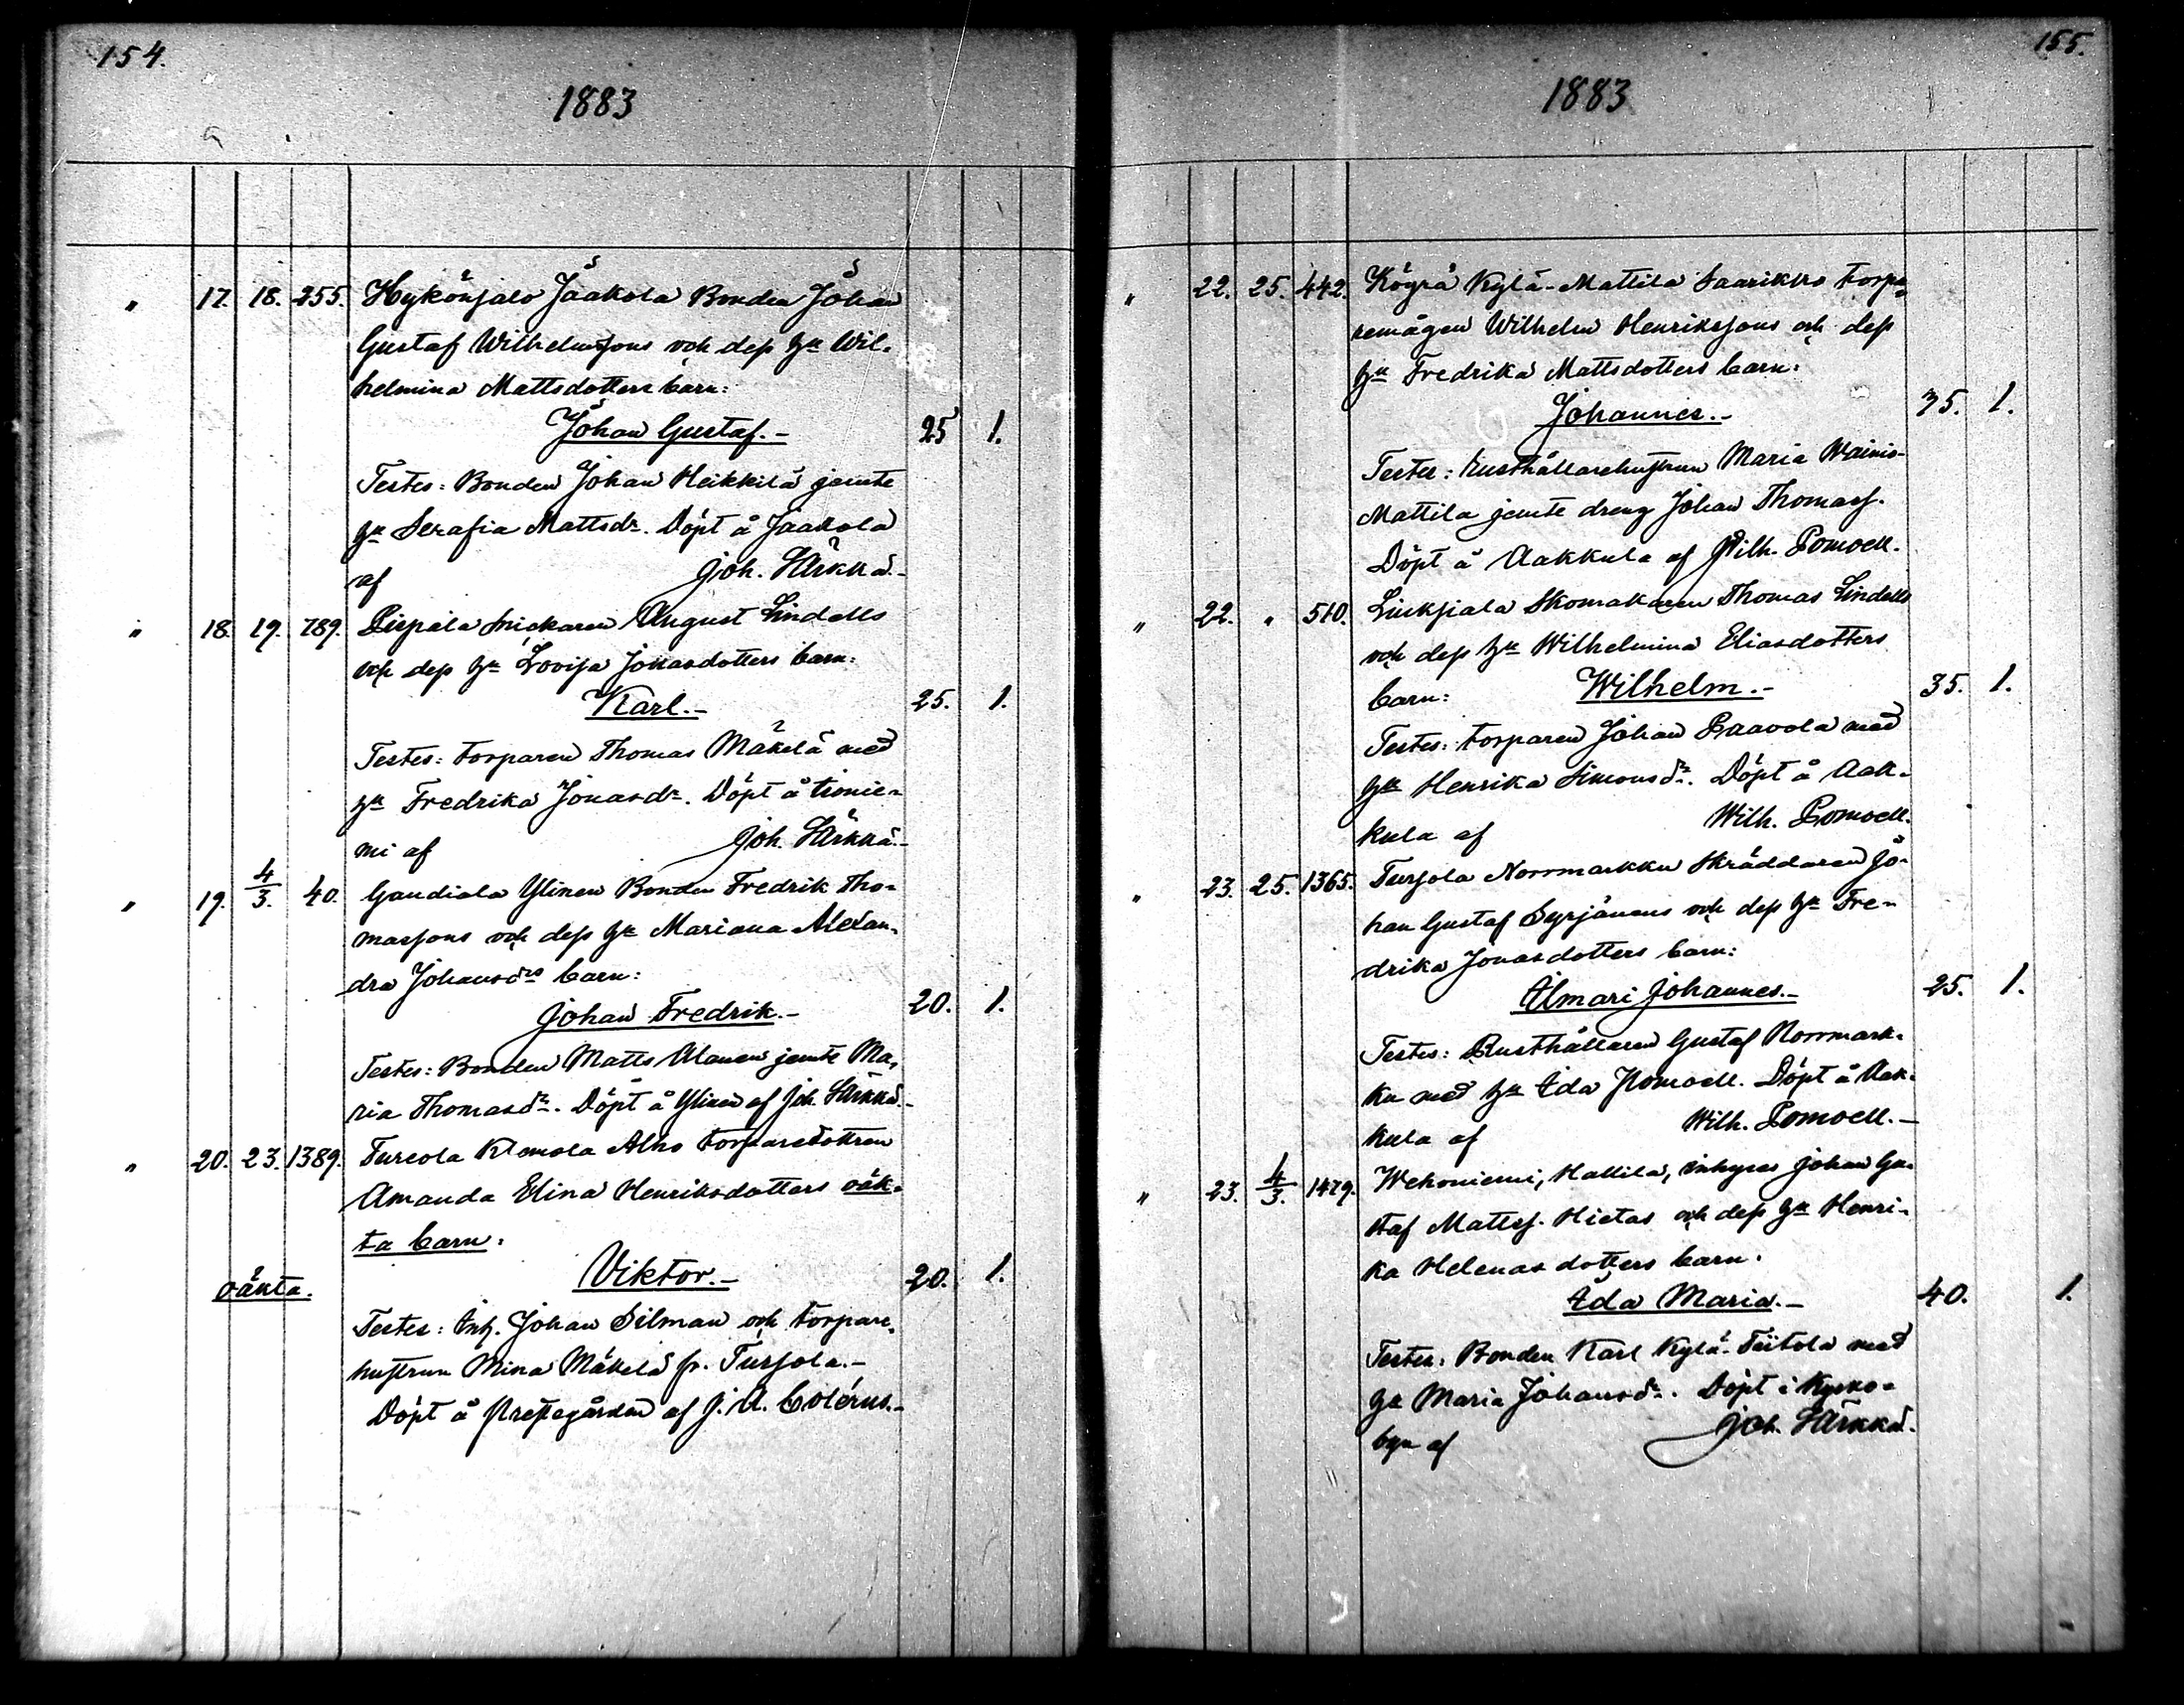 154.
1883
" 17. 18. 255. Hykönsalo Jaakola Bonden Johan
Gustaf Wilhelmssons och dess hu Wil-
helmina Mattsdotters barn:
Johan Gustaf.- 25 1.
Testes: Bonden Johan Heikkilä jemte
hu Serafia Mattsdr. Döpt å Jaakola
af Joh. Särkkä.-
" 18. 19. 789. Piepala snickaren August Lindells
och dess hu Lovisa Jonasdotters barn:
Karl.- 25. 1.
Testes: torparen Thomas Mäkelä med
hu Fredrika Jonasdr. Döpt å
mi af Joh. Särkkä.-
" 19. 4/3. 40. Gaudiala Ylinen Bonden Fredrik Tho-
massons och dess hu Mariana Alexan-
dra Johansdrs barn:
Johan Fredrik.- 20. 1.
Testes: Bonden Matts Alanen jemte Ma-
ria Thomasdr. Döpt å Ylinen af Joh. Särkkä.-
" 20. 23. 1389. Tursola Klemola Alho torparedottren
Amanda Elina Henriksdotters oäk-
ta barn:
oäkta. Viktor.- 20. 1.
Testes: Inh. Johan Silman och torpare-
hustrun Mina Mäkelä fr. Tursola.-
Döpt å Prestegården af J. A. Colérus.-
155.
1883
" 22. 25. 442. Kögrä Kylä-Mattila Saarikko torpa-
remågen Wilhelm Henrikssons och dess
hu Fredrika Mattsdotters barn:
Johannes.- 35. 1.
Testes: Rusthållarehustrun Maria Wainio-
Mattila jemte dreng Johan Thomass.
Döpt å Aakkula af Wilh. Pomoell.
" 22. " 510. Linksiala Skomakaren Thomas Lindells
och dess hu Wilhelmina Eliasdotters
barn: Wilhelm.- 35. 1.
Testes: torparen Johan Paavola med
hu Henrika Simonsdr. Döpt å Aak-
kula af Wilh. Pomoell.
" 23. 25. 1365. Tursola Norrmarkku Skräddaren Jo-
han Gustaf Syrjänens och dess hu Fre-
drika Jonasdotters barn:
Ilmari Johannes.- 25. 1.
Testes: Rusthållaren Gustaf Norrmark-
ku med hu Ida Pomoell. Döpt å Aak-
kula af Wilh. Pomoell.-
" 23. 4/3. 1479. Wehoniemi, Hallila, inhyses Johan Gu-
staf Mattss. Hietas och dess hu Henri-
ka Helenas dotters barn:
Ida Maria.- 40. 1.
Testes: Bonden Karl Kylä-Tiitola med
hu Maria Johansdr. Döpt i Kyrko-
byn af Joh. Särkkä.